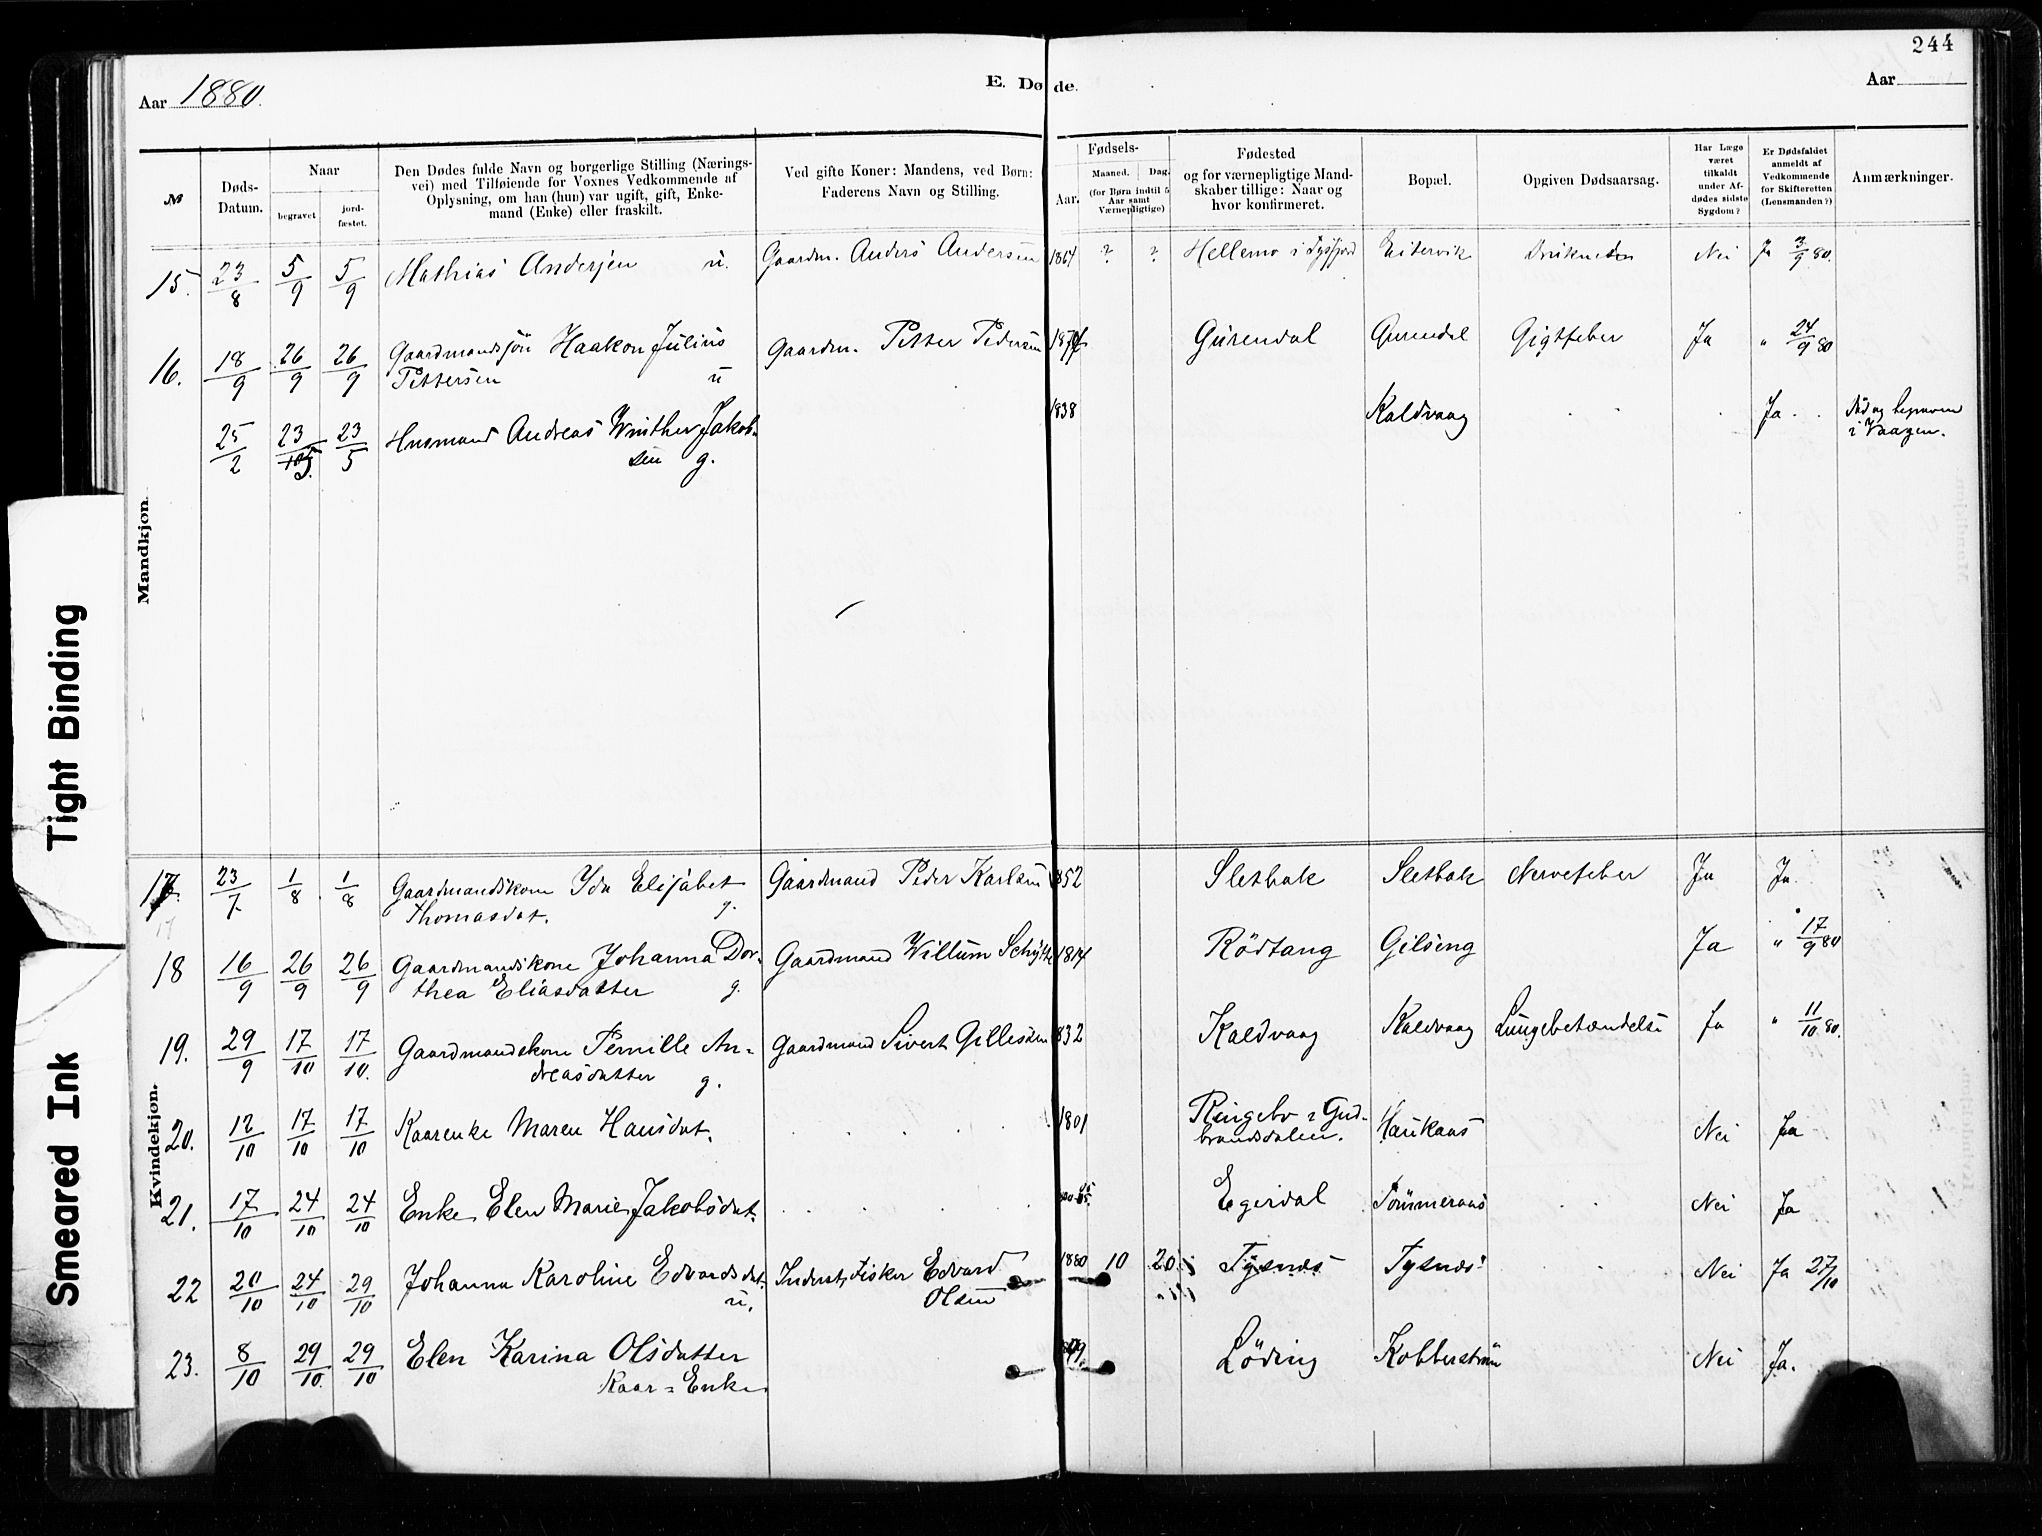 244
Aar 1880.
E. Døde.
Aar
№
Døds-
Datum.
Naar
begravet
jord-
fæstet.
Den Dødes fulde Navn og borgerlige Stilling (Nærings-
vei) med Tilføiende for Voxnes Vedkommende af
Oplysning, om han (hun) var ugift, gift, Enke-
mand (Enke) eller fraskilt.
Ved gifte Koner: Mandens, ved Børn:
Faderens Navn og Stilling.
Fødsels-
Aar.
Maaned.
Dag.
(for Børn indtil 5
Aar samt
Værnepligtige)
Fødested
og for værnepligtige Mand-
skaber tillige: Naar og
hvor konfirmeret.
Bopæl.
Opgiven Dødsaarsag.
Har Læge
været
tilkaldt
under Af-
dødes sidste
Sygdom?
Er Dødsfaldet
anmeldt af
Vedkommende
for Skifteretten
(Lensmanden?)
Anmærkninger.
Mandkjøn.
15. 23/8 5/9 5/9 Mathias Andersen u. Gaardm. Anders Andersen 1864 ? ? Hellemo i Tysfjord Eitervik Druknede Nei Ja 3/9 80.
16. 18/9 26/9 26/9 Gaardmandssøn Haakon Julius Gaardm. Petter Pedersen Gürendal Gurendal Gigtfeber Ja " 24/9 80
Pettersen u
25/2 23/5 23/5 Husmand Andreas Winther Jakob- 1838 Kaldvaag Ja. Död og begraven
sen g. i Vaagen.
Kvindekjøn.
17. 23/7 1/8 1/8 Gaardmandskone Ida Elisabet Gaardmand Peder Karlsen 1852 Sletbak Sletbak Nervefeber Ja Ja.
Thomasdat. g.
18 16/9 26/9 26/9 Gaardmandskone Johanna Dor- Gaardmand Willum Schytte 1814 Rödtang Gilseng Ja " 17/9 80
thea Eliasdatter g.
19. 29/9 17/10 17/10. Gaardmandskone Pernille An- Gaardmand Sivert Gillesen 1832 Kaldvaag Kaldvaag Lungebetændelse Ja " 11/10 80.
dreasdatter g.
20. 12/10 17/10 17/10 Kaarenke Maren Hansdat. 1801 Ringebo i Gud- Haukaas Nei Ja
brandsdalen.
21. 17/10 24/10 24/10 Enke Elen Marie Jakobsdat. Egerdal Tömmeraas Nei Ja
22 20/10 24/10 29/10 Johanna Karoline Edvardsdat. Inderst, Fisker Edvard 1880 10 20 Tysnes Tysnes Nei Ja 27/10
u. Olsen
23. 8/10 29/10. 29/10 Elen Karina Olsdatter Löding Kobberström Nei Ja.
Kaar = Enke
Tight Binding
Smeared Ink